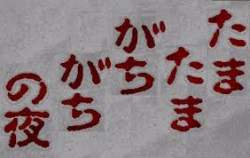 たま
たま
がち
がち
の夜